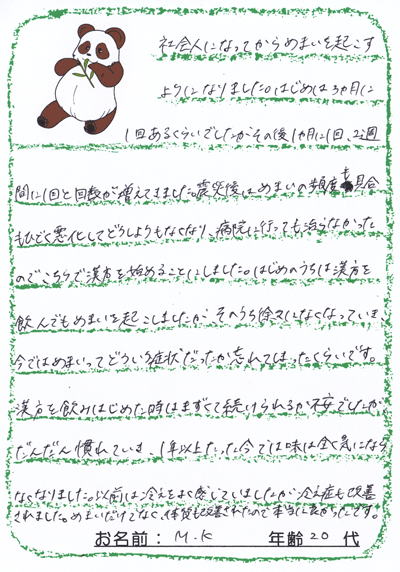 社会人になってからめまいを起こす
ようになりました。はじめは3ヵ月に
1回あるくらいでしたがその後1ヵ月に1回、2週
間に1回と回数が増えてきました。震災後はめまいの頻度も具合
もひどく悪化してどうしようもなくなり、病院に行っても治らなかった
のでこちらで漢方を始めることにしました。はじめのうちは漢方を
飲んでもめまいを起こしましたが そのうち徐々になくなっていき
今ではめまいってどういう症状だったか忘れてしまったくらいです。
漢方を飲みはじめた時はまずくて続けられるか不安でしたが
だんだん慣れていき、1年以上たった今では味は全く気になら
なくなりました。以前は冷えをよく感じていましたが冷え症も改善
されました。めまいだけでなく、体質も改善されたので本当に良かったです。
お名前：M.K 年齢20代